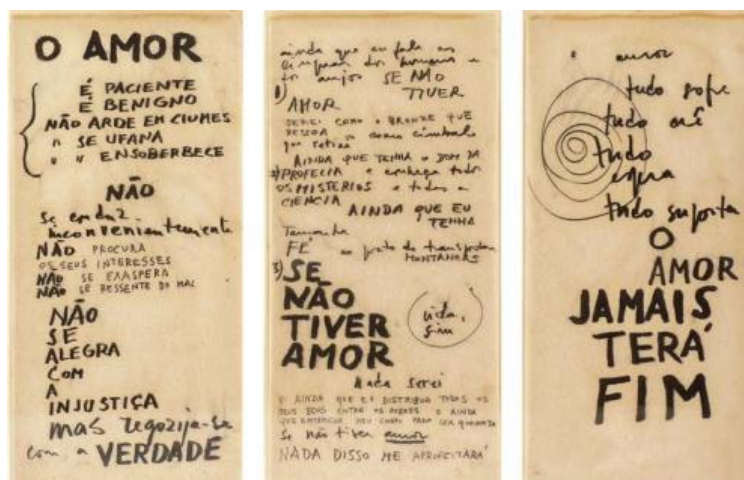 O AMOR
É PACIENTE
É BENIGNO
NÃO ARDE EM CIUMES
" SE UFANA
" " ENSOBERBECE
NÃO
Se conduz
inconvenientemente
NÃO PROCURA
OS SEUS INTERESSES
NÃO SE EXASPERA
NÃO SE RESSENTE DO MAL
NÃO
SE
ALEGRA
COM
A
INJUSTIÇA
mas regozija-se
com a VERDADE
ainda que eu fale as
línguas dos homens e
dos anjos SE NÃO
1) TIVER
AMOR
SEREI COMO O BRONZE QUE
RESSOA ou como címbalo
que retine
AINDA QUE TENHA o DOM DA
2) PROFECIA e conheça todos
OS MISTÉRIOS e toda a
CIENCIA
AINDA QUE EU
TENHA
Tamanha
FÉ ao ponto de transportar
MONTANHAS
3) SE
NÃO
TIVER
AMOR
vida,
sim
Nada serei
E AINDA QUE EU DISTRIBUA TODOS OS
MEUS BENS ENTRE OS POBRES E AINDA
QUE ENTREGUE MEU CORPO PARA SER QUEIMADO
Se não tiver amor
NADA DISSO ME APROVEITARÁ
o amor
tudo sofre
tudo crê
tudo
espera
tudo suporta
O
AMOR
JAMAIS
TERÁ
FIM